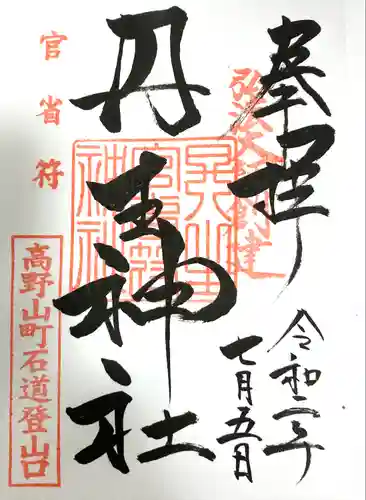 奉拝
弘法大師創建
令和二年
七月五日
丹生神社
官省符
高野山町石道登山口